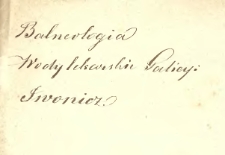 Balneologia
Wody lekarskie Galicyi
Iwonicz.